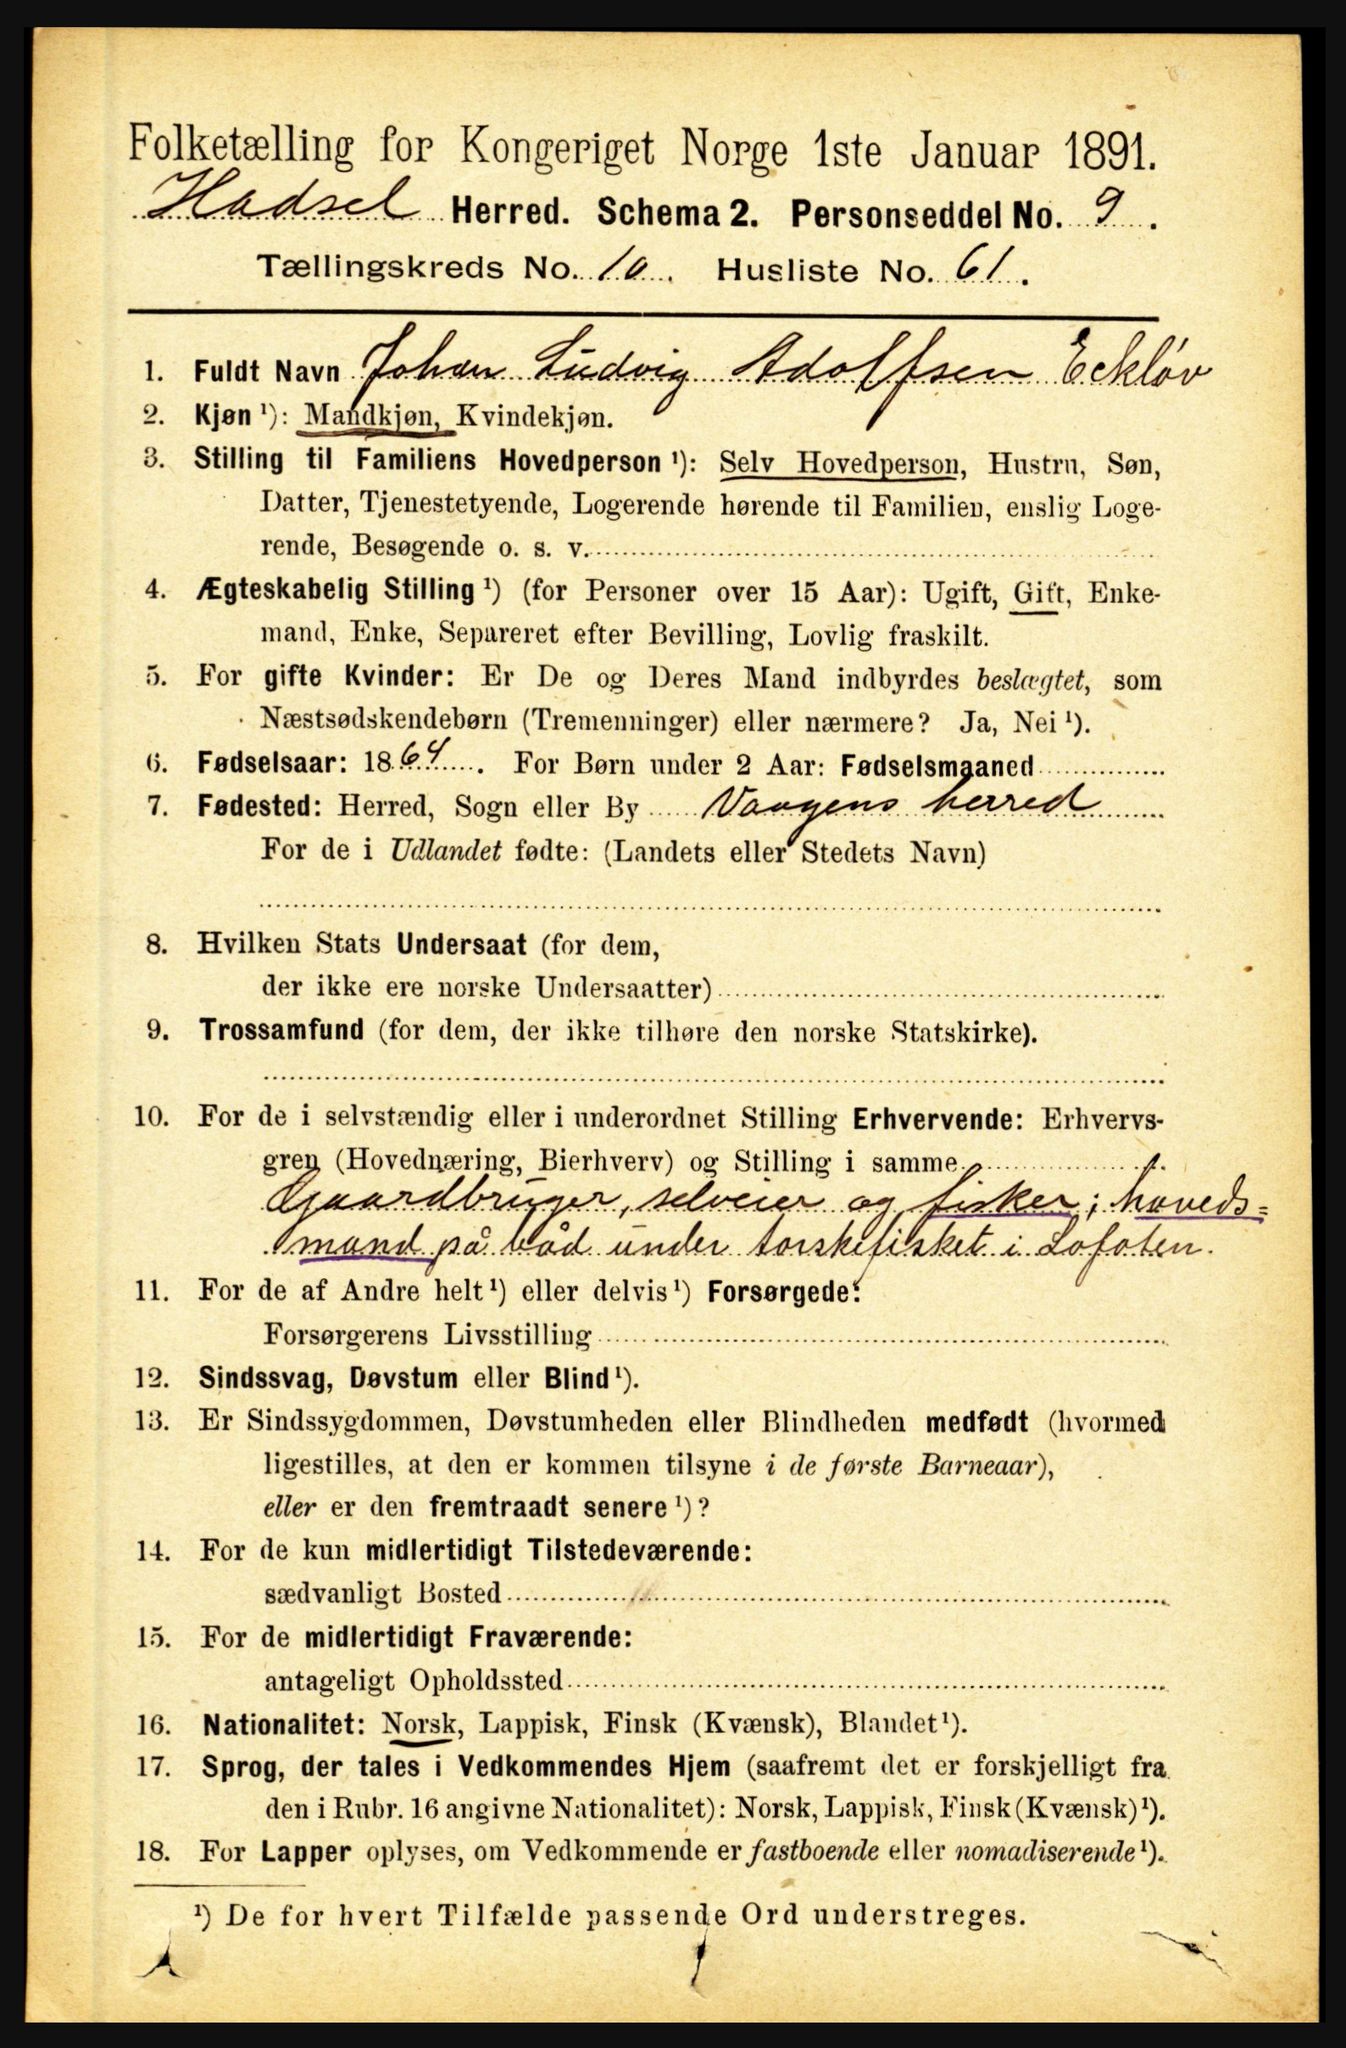 Folketælling for Kongeriget Norge 1ste Januar 1891.
Hadsel Herred. Schema 2. Personseddel No. 9.
Tællingskreds No. 10. Husliste No. 61.
1. Fuldt Navn Johan Ludvig Adolfsen Eckløv
2. Kjøn ¹): Mandkjøn, Kvindekjøn.
3. Stilling til Familiens Hovedperson ¹): Selv Hovedperson, Hustru, Søn,
Datter, Tjenestetyende, Logerende hørende til Familien, enslig Loge-
rende, Besøgende o. s. v.
4. Ægteskabelig Stilling ¹) (for Personer over 15 Aar): Ugift, Gift, Enke-
mand, Enke, Separeret efter Bevilling, Lovlig fraskilt.
5. For gifte Kvinder: Er De og Deres Mand indbyrdes beslægtet, som
Næstsødskendebørn (Tremenninger) eller nærmere? Ja, Nei ¹).
6. Fødselsaar: 1864. For Børn under 2 Aar: Fødselsmaaned
7. Fødested: Herred, Sogn eller By Vaagens herred
For de i Udlandet fødte: (Landets eller Stedets Navn)
8. Hvilken Stats Undersaat (for dem,
der ikke ere norske Undersaatter)
9. Trossamfund (for dem, der ikke tilhøre den norske Statskirke).
10. For de i selvstændig eller i underordnet Stilling Erhvervende: Erhvervs-
gren (Hovednæring, Bierhverv) og Stilling i samme
Gaardbruger, selveier og fisker; høveds=
mand på båd under torskefisket i Lofoten.
11. For de af Andre helt ¹) eller delvis ¹) Forsørgede:
Forsørgerens Livsstilling
12. Sindssvag, Døvstum eller Blind ¹).
13. Er Sindssygdommen, Døvstumheden eller Blindheden medfødt (hvormed
ligestilles, at den er kommen tilsyne i de første Barneaar),
eller er den fremtraadt senere ¹)?
14. For de kun midlertidigt Tilstedeværende:
sædvanligt Bosted
15. For de midlertidigt Fraværende:
antageligt Opholdssted
16. Nationalitet: Norsk, Lappisk, Finsk (Kvænsk), Blandet ¹).
17. Sprog, der tales i Vedkommendes Hjem (saafremt det er forskjelligt fra
den i Rubr. 16 angivne Nationalitet): Norsk, Lappisk, Finsk (Kvænsk) ¹).
18. For Lapper oplyses, om Vedkommende er fastboende eller nomadiserende ¹).
¹) De for hvert Tilfælde passende Ord understreges.